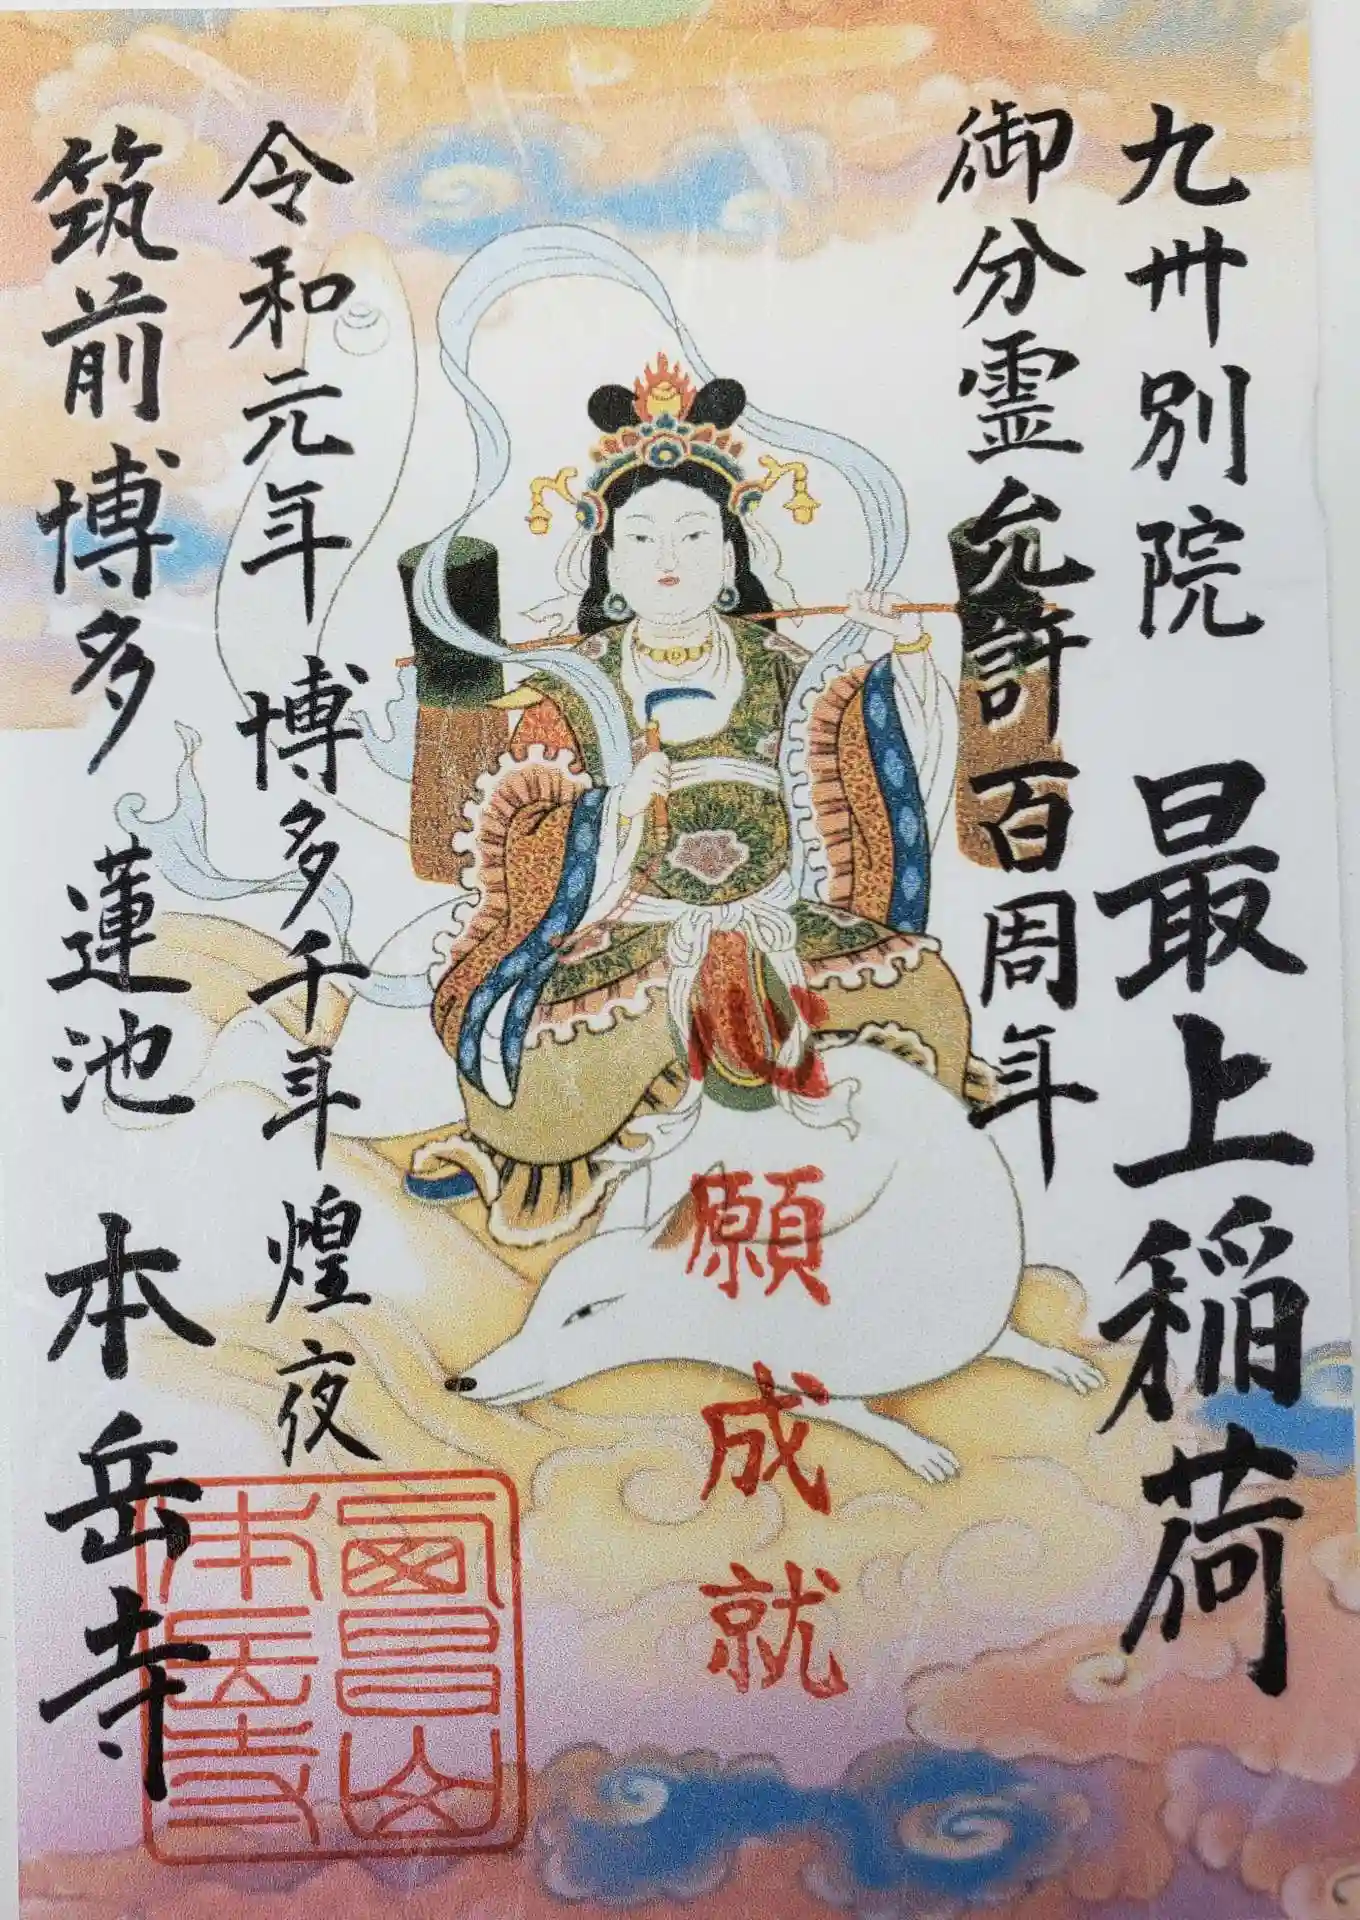 九卅別院 最上稲荷
御分霊允許百周年
心願成就
令和元年 博多千年煌夜
筑前博多 蓮池 本岳寺
本岳寺